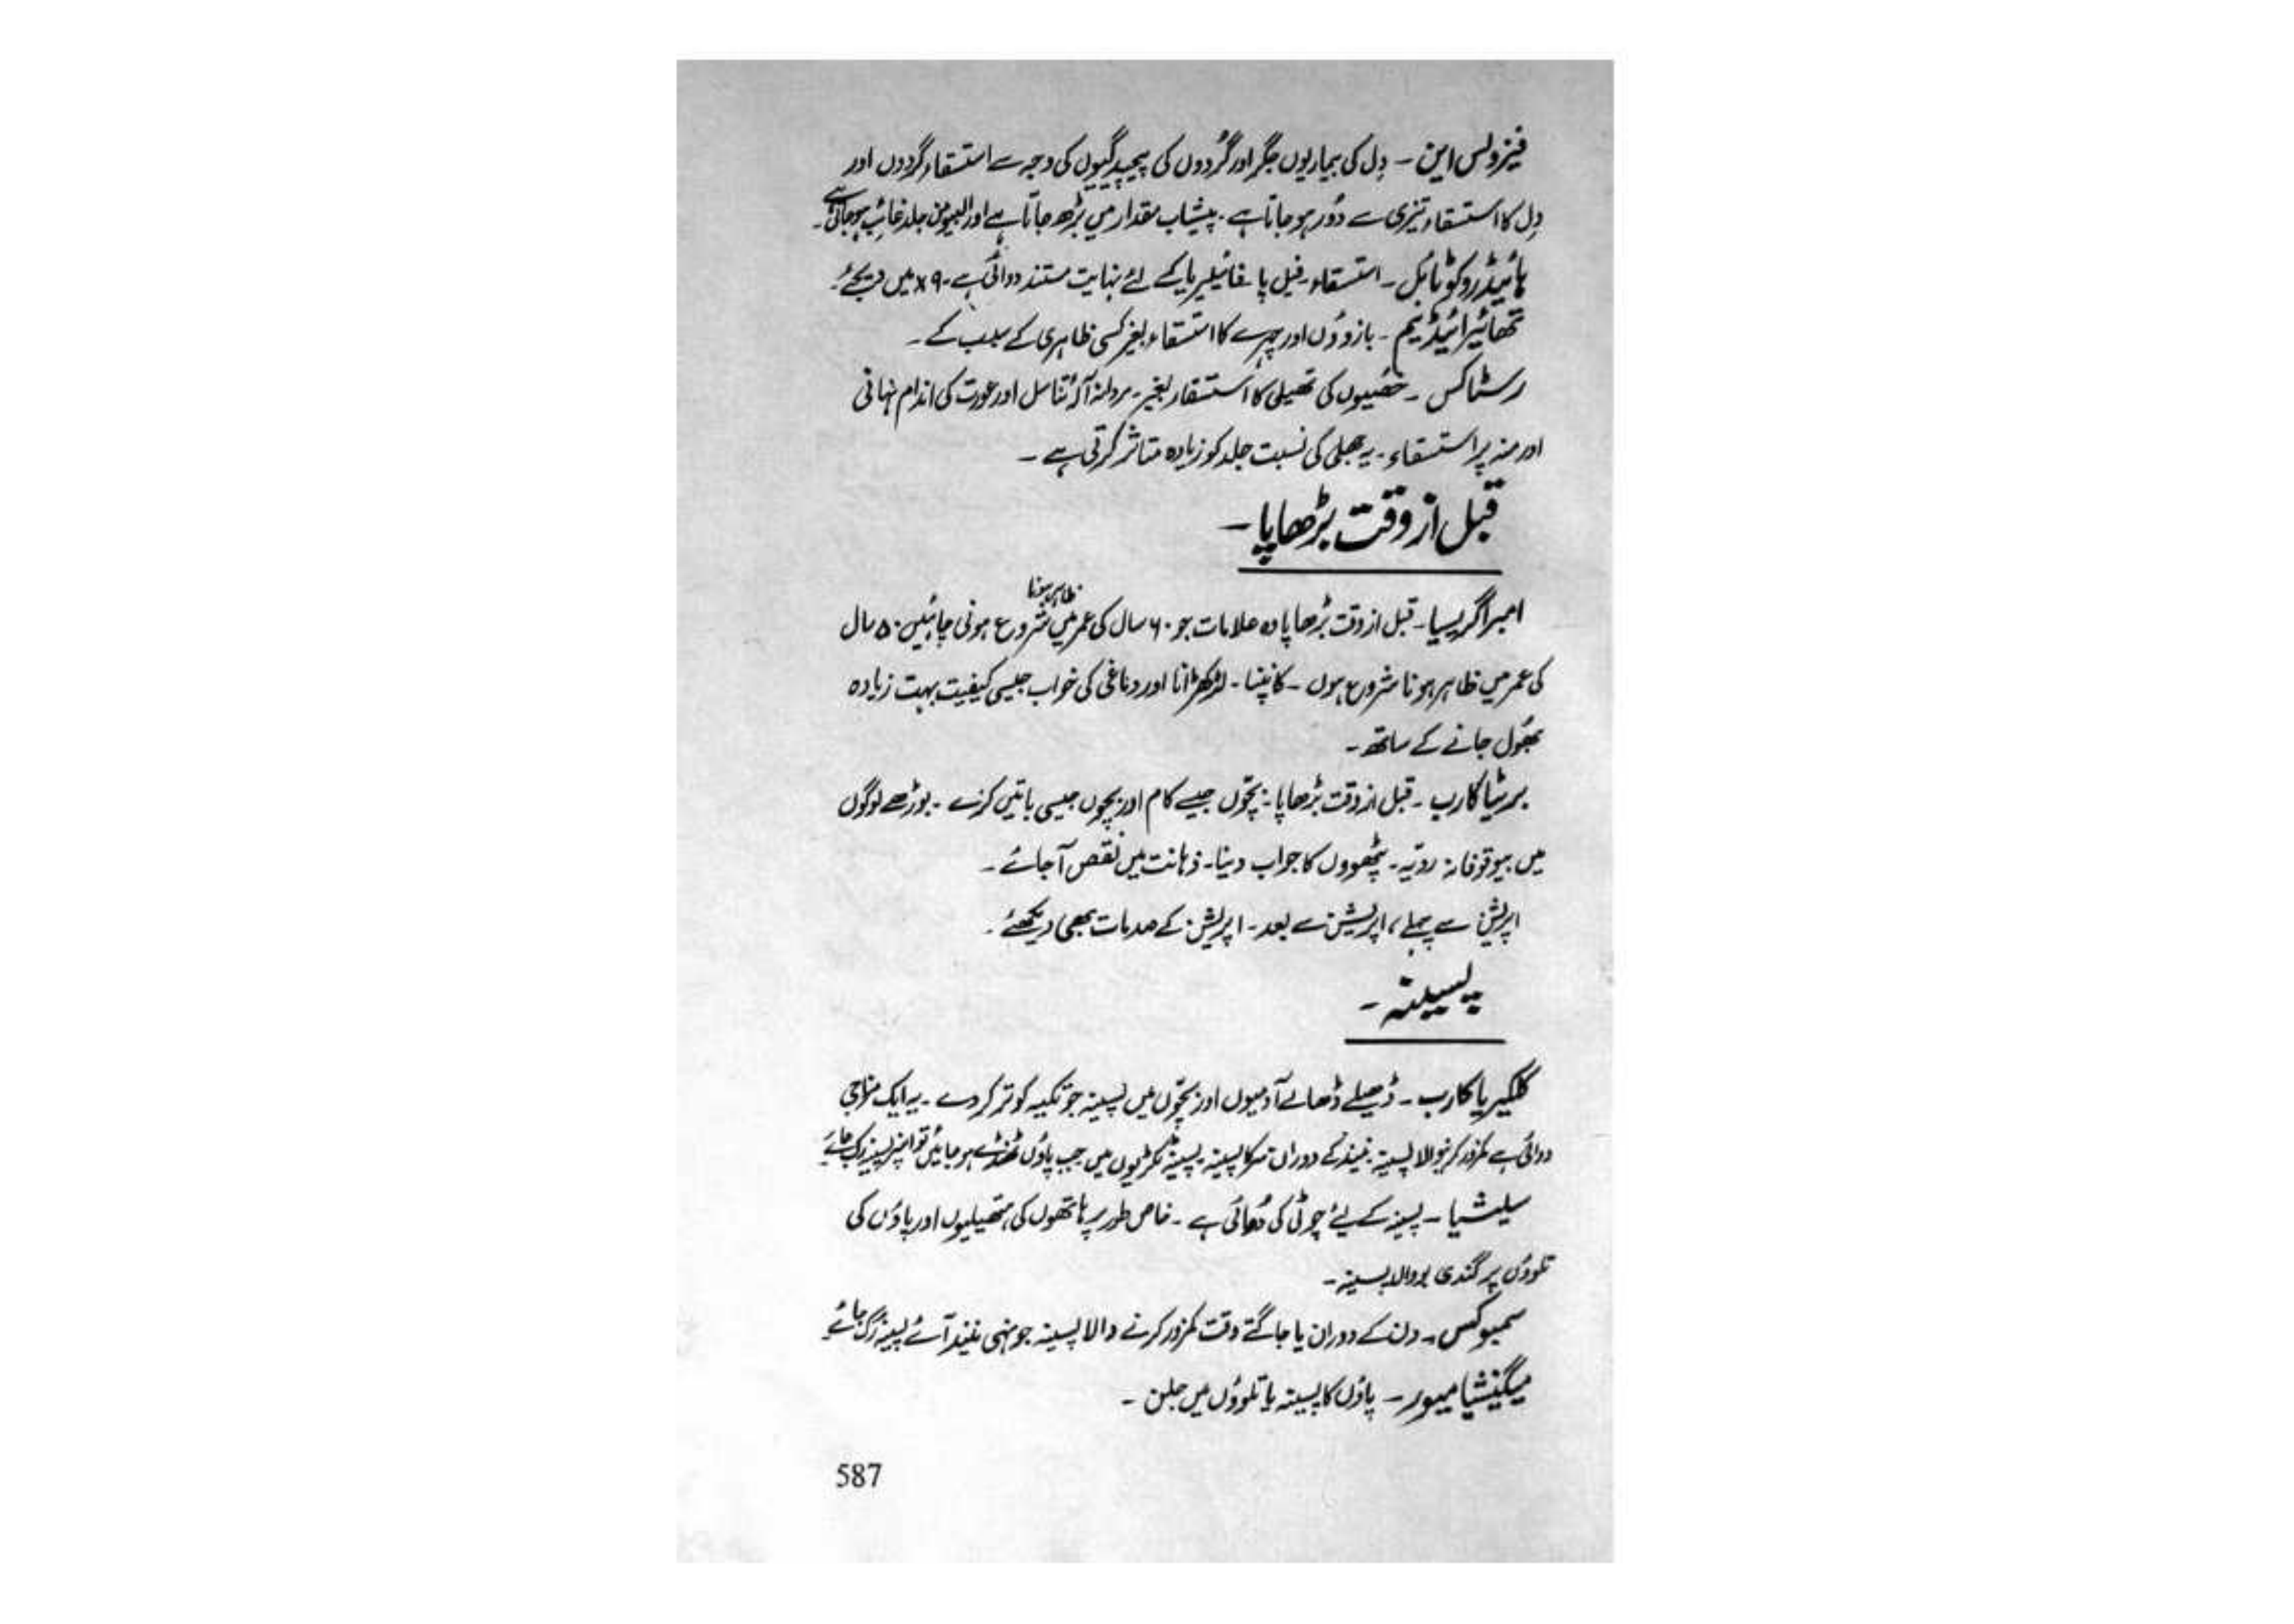 فیزولس این - دِل کی بیماریوں جگر اور گُردوں کی پیچیدگیوں کی وجہ سے استسقاء گردوں اور
دِل کا استسقاء تیزی سے دُور ہو جاتا ہے۔ پیشاب مقدار میں بڑھ جاتا ہے اور البیومن جلد غائب ہو جاتی ہے۔
ہائیڈروکوٹائل - استسقاء - فیل پا فائیلیریا کے لئے نہایت مستند دوائی ہے۔ x9 میں دیجئے۔
تھائیرائیڈینم - بازوؤں اور چہرے کا استسقاء بغیر کسی ظاہری کے سبب کے۔
رسٹاکس - خصیوں کی تھیلی کا استسقاء بغیر - مردانہ آلۂ تناسل اور عورت کی اندام نہانی
اور منہ پر استسقاء - یہ جھلی کی نسبت جلد کو زیادہ متاثر کرتی ہے -
قبل از وقت بڑھاپا -
امبراگریسیا - قبل از وقت بُڑھاپا وہ علامات جو ۶۰ سال کی عمر میں ظاہر ہونا شروع ہونی چاہئیں ۵۰ سال
کی عمر میں ظاہر ہونا شروع ہوں - کانپنا - لڑکھڑانا اور دماغی کی خواب جیسی کیفیت بہت زیادہ
بھُول جانے کے ساتھ -
برٹیا کارب - قبل از وقت بڑھاپا - بچّوں جیسے کام اور بچوں جیسی باتیں کرے - بوڑھے لوگوں
میں بیوقوفانہ رویّہ - پٹھووں کا جواب دینا - ذہانت میں نقص آ جائے -
اپریشن سے پہلے، اپریشن سے بعد - اپریشن کے صدمات بھی دیکھئے -
پسینہ -
کلکیریا کارب - ڈھیلے ڈھالے آدمیوں اور بچّوں میں پسینہ جو تکیہ کو تر کر دے - یہ ایک مزاجی
دوائی ہے کمزور کرنیوالا پسینہ - نیند کے دوران سر کا پسینہ - پسینہ ٹکڑیوں میں جب پاؤں ٹھنڈے ہو جائیں تو پسینہ رک جائے
سیلشیا - پسینہ کے لئے چوٹی کی دُوائی ہے - خاص طور پر ہاتھوں کی ہتھیلیوں اور پاؤں کی
تلووُں پر گندی بو والا پسینہ -
سمبوکس - دن کے دوران یا جاگتے وقت کمزور کرنے والا پسینہ جونہی نیند آئے پسینہ رُک جائے
میگنیشیا میور - پاؤں کا پسینہ یا تلووُں میں جلن -
587